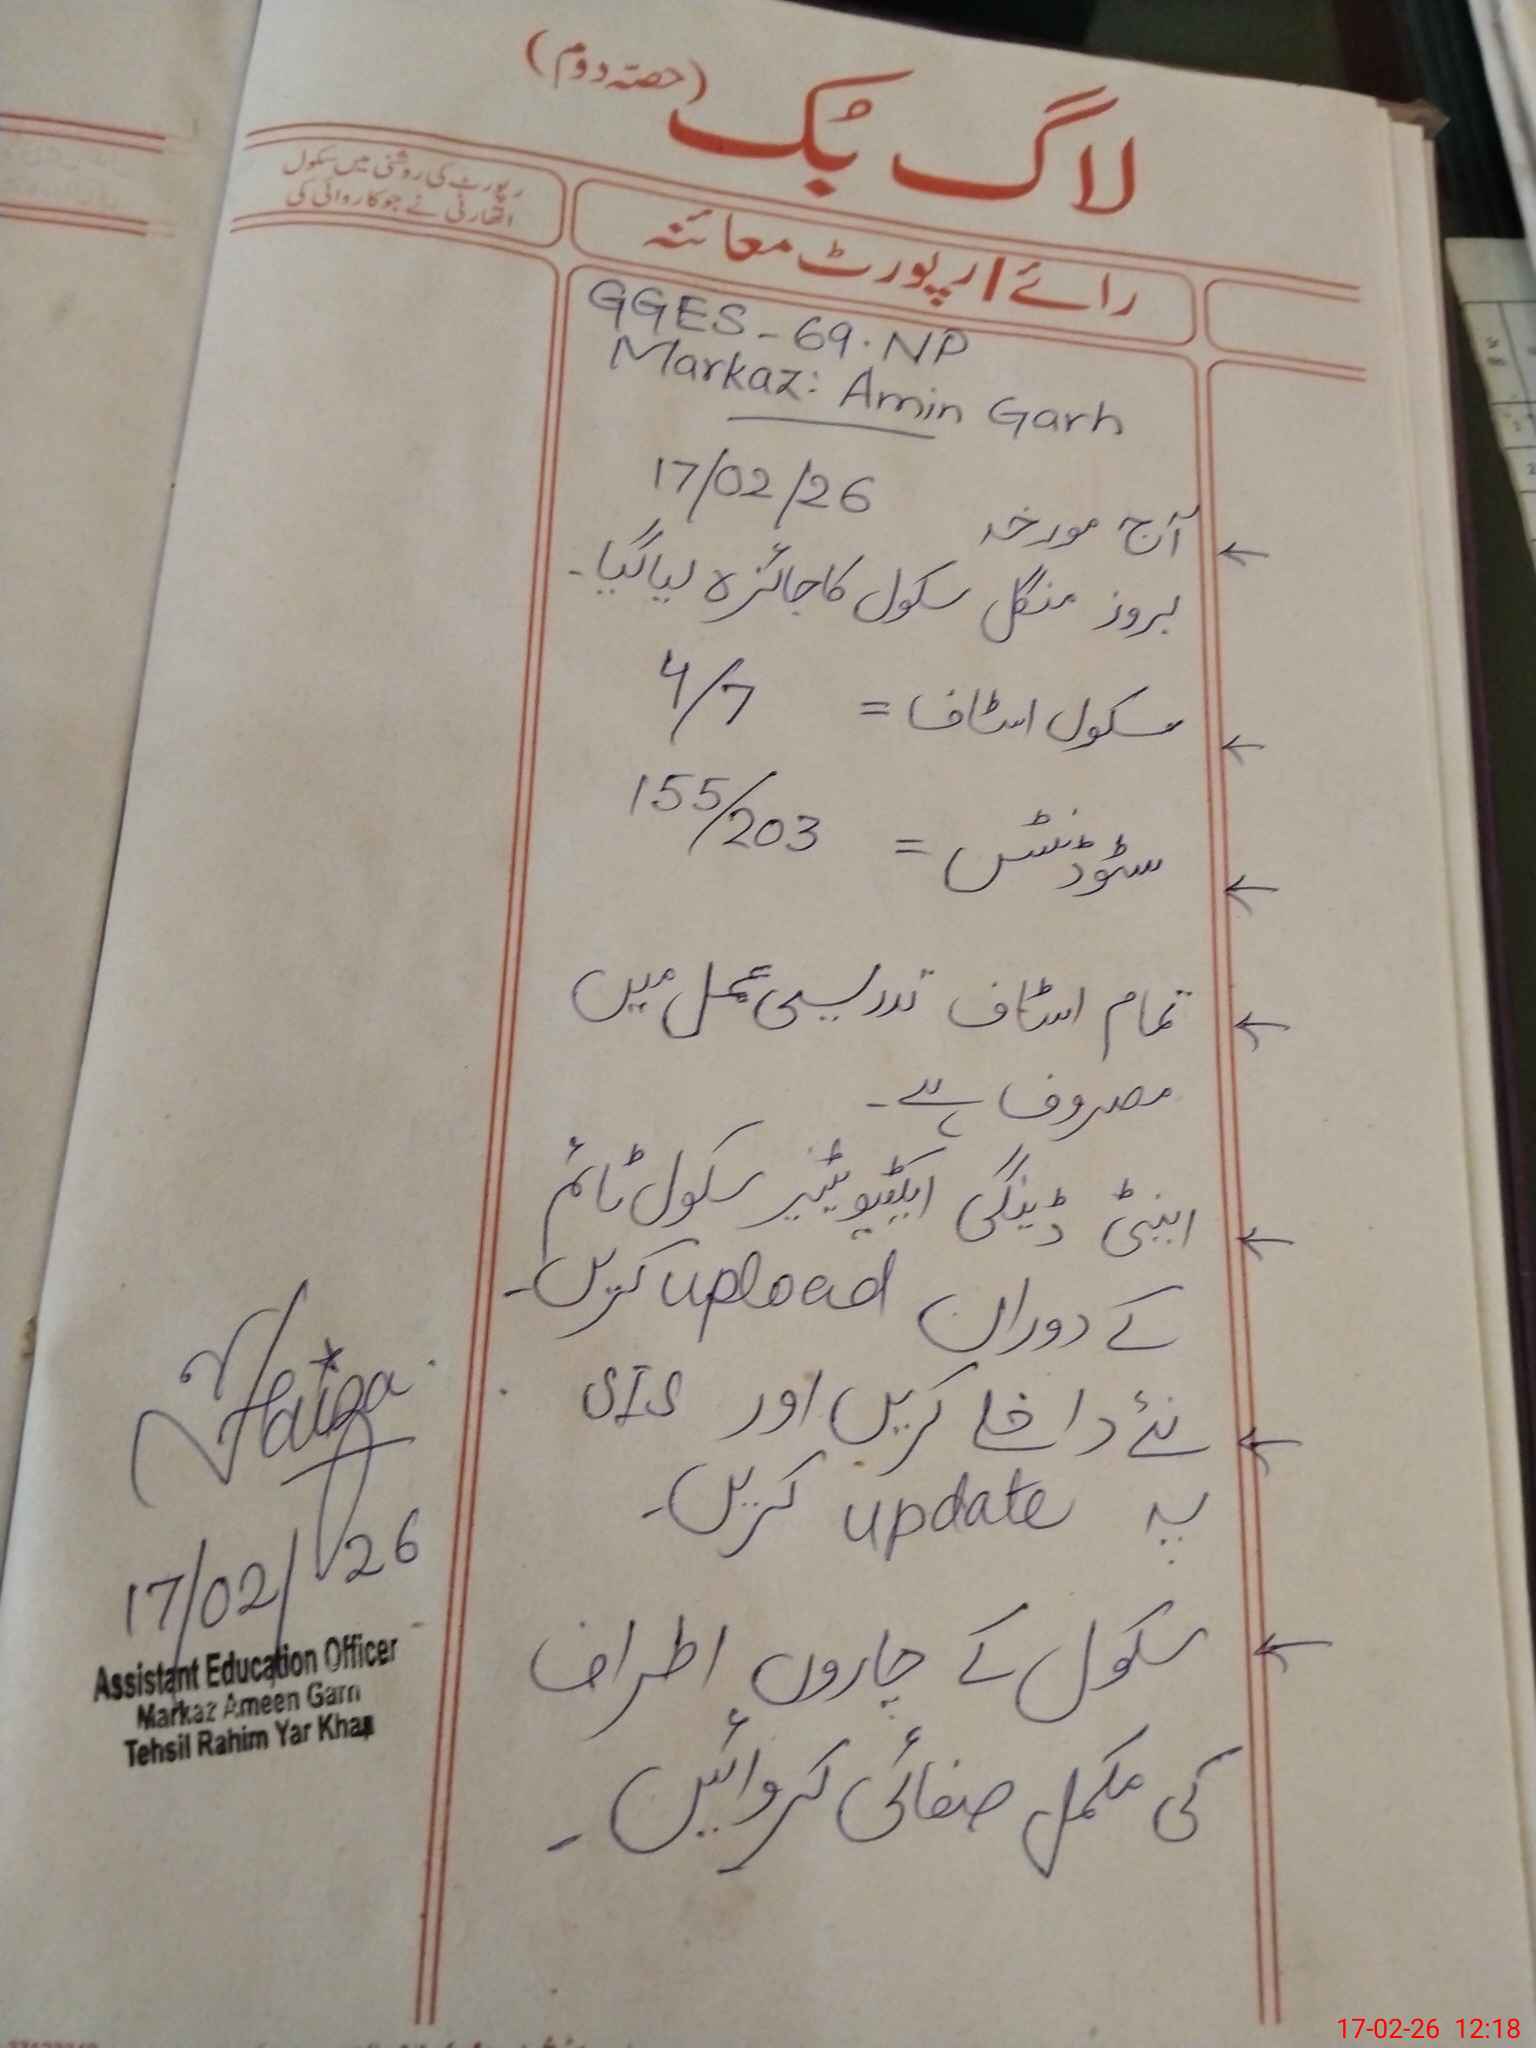 لاگ بک (حصہ دوم)
رائے / رپورٹ معائنہ
رپورٹ کی روشنی میں سکول
اتھارٹی نے جو کاروائی کی
GGES-69.NP
Markaz: Amin Garh
آج مورخہ 17/02/26
بروز منگل سکول کا جائزہ لیا گیا۔
سکول اسٹاف = 4/7
سٹوڈنٹس = 155/203
تمام اسٹاف تدریسی عمل میں
مصروف ہے۔
اینٹی ڈینگی ایکٹیویٹیز سکول ٹائم
کے دوران upload کریں۔
نئے داخلے کریں اور SIS
پہ update کریں۔
سکول کے چاروں اطراف
کی مکمل صفائی کروائیں۔
17/02/26
Assistant Education Officer
Markaz Ameen Garh
Tehsil Rahim Yar Khan
17-02-26 12:18